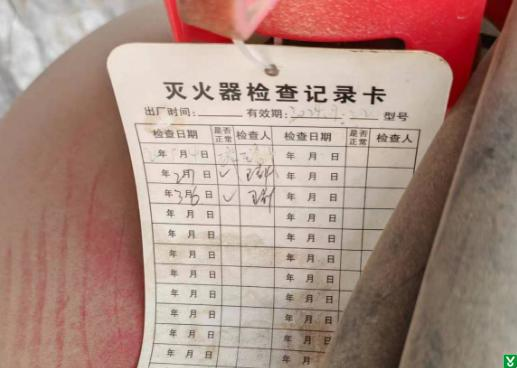 灭火器检查记录卡
出厂时间: 有效期: 型号
检查日期 是否正常 检查人 检查日期 是否正常 检查人
年 月 日 年 月 日
年 2 月 7 日 ✓ 年 月 日
年 3 月 6 日 ✓ 年 月 日
年 月 日 年 月 日
年 月 日 年 月 日
年 月 日 年 月 日
年 月 日 年 月 日
年 月 日 年 月 日
年 月 日 年 月 日
年 月 日 年 月 日
年 月 日 年 月 日